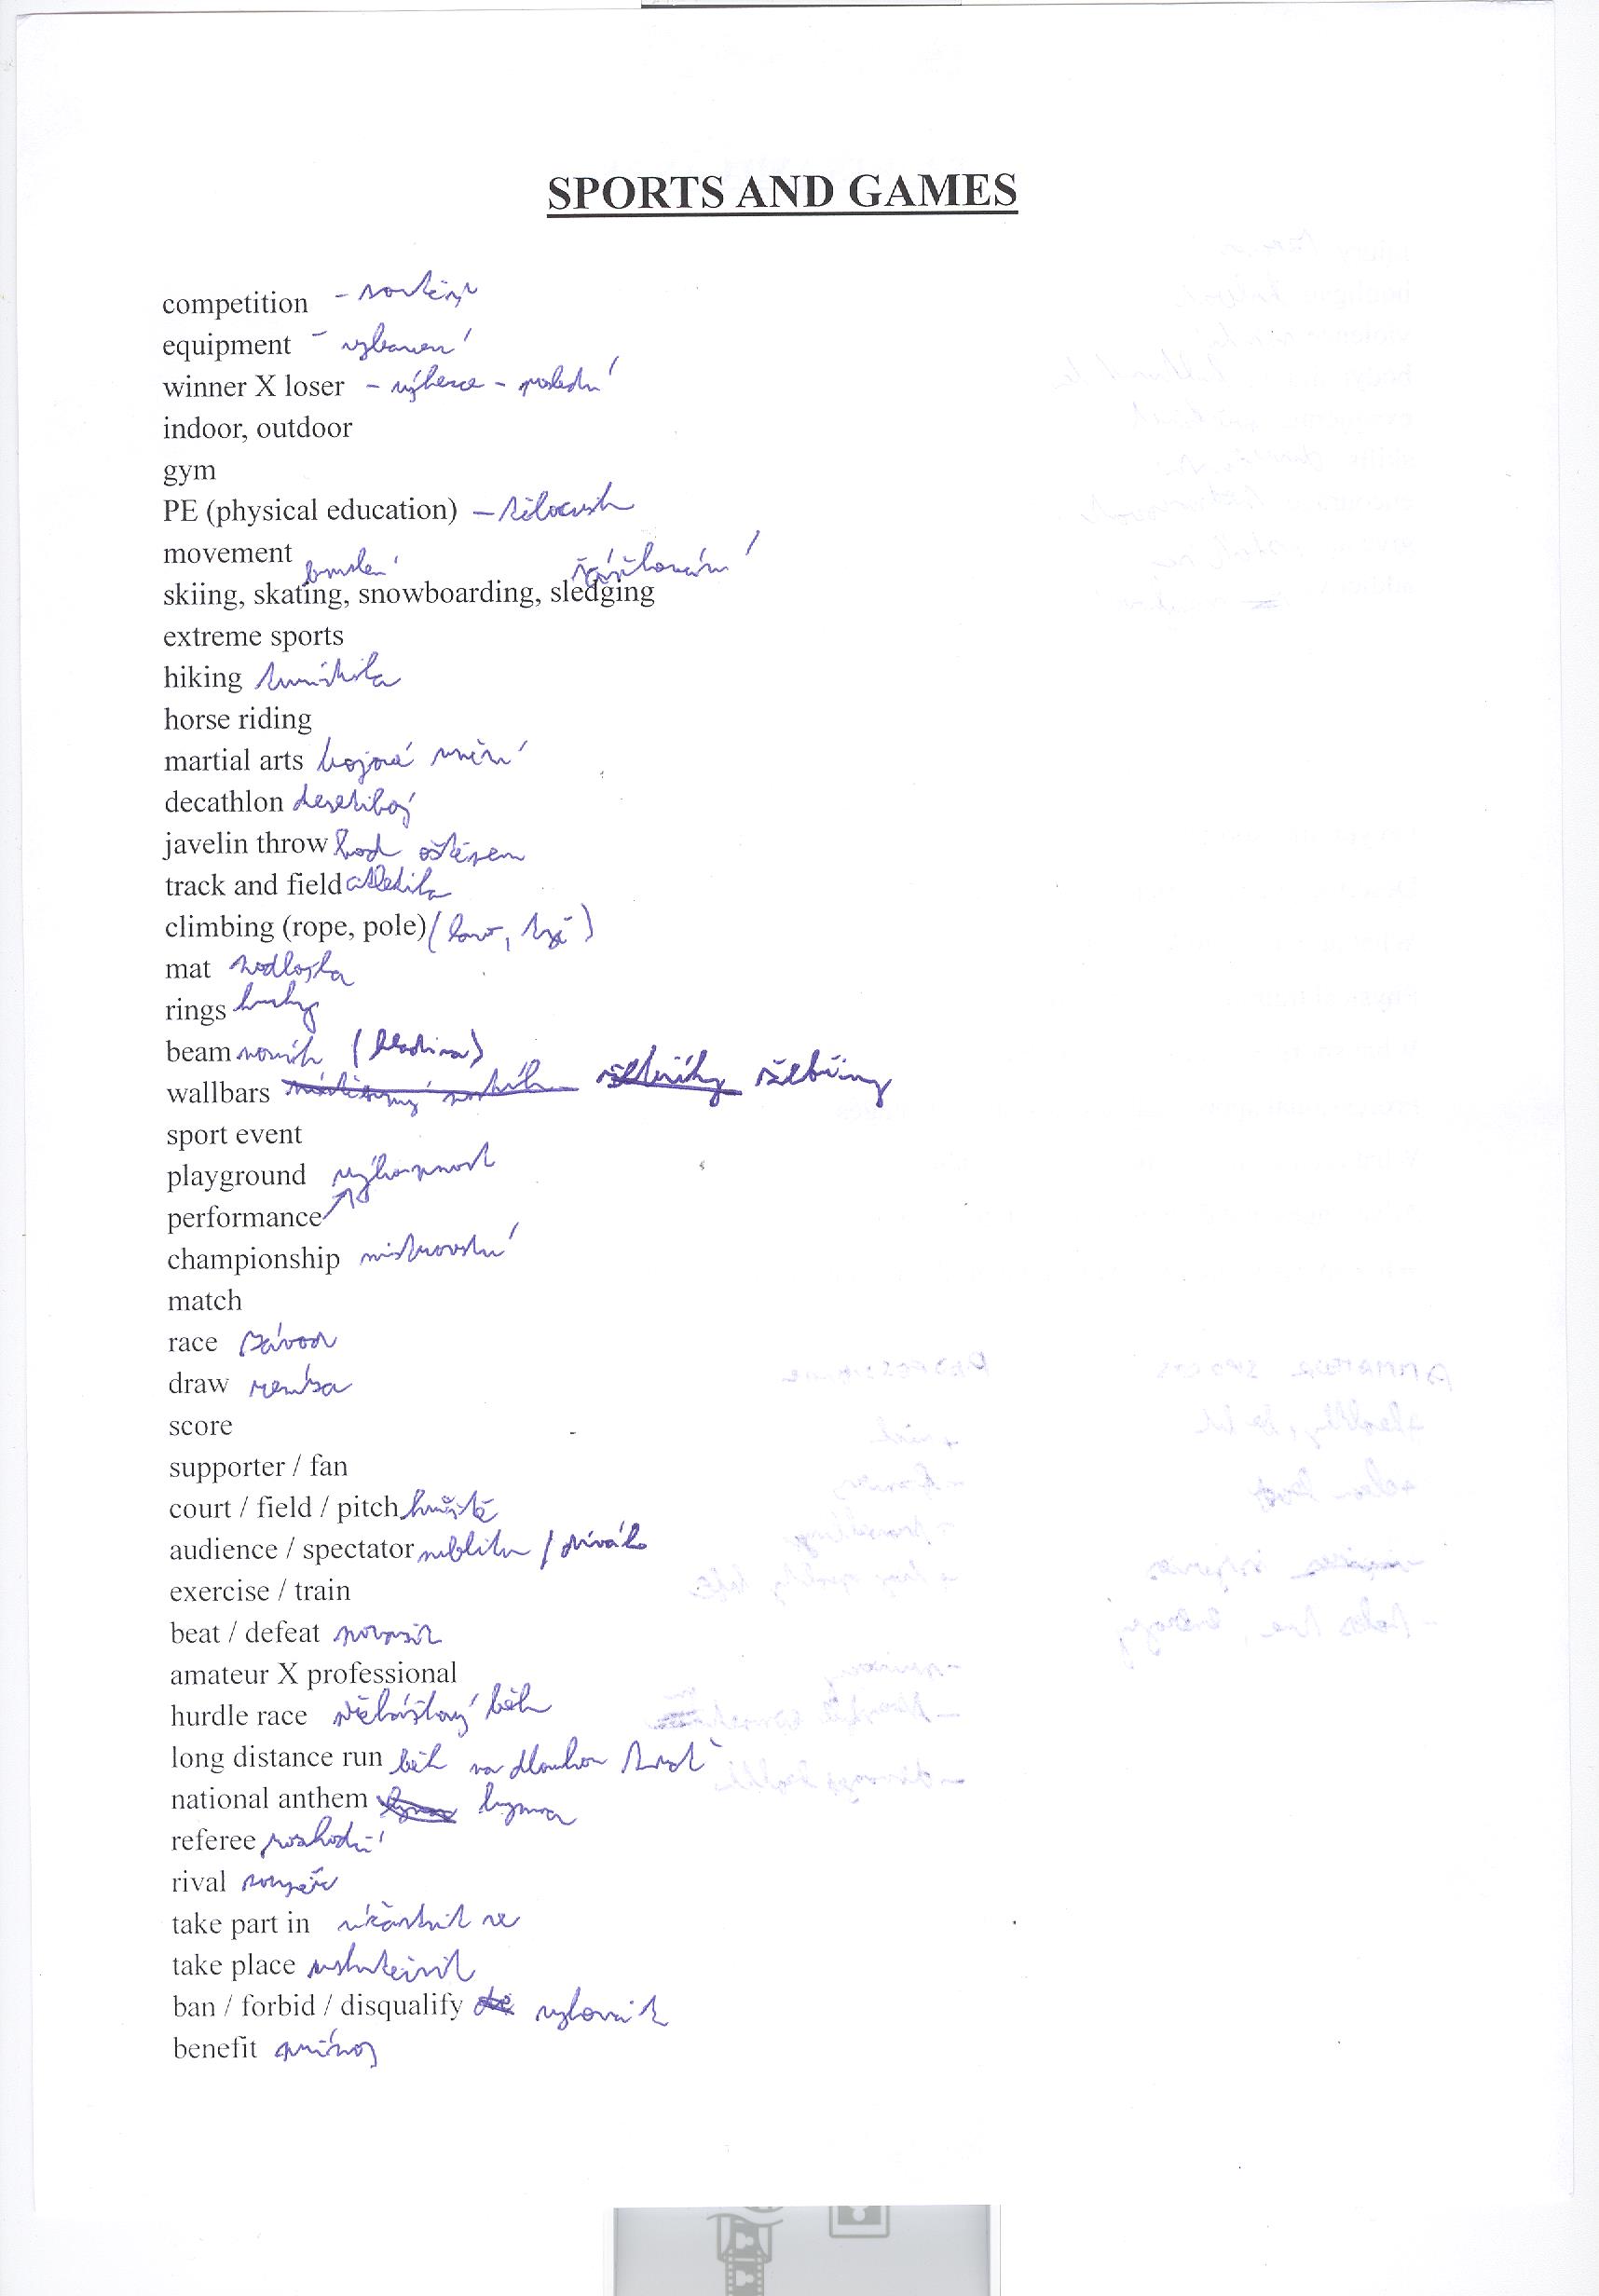 SPORTS AND GAMES
competition - soutěž
equipment - vybavení
winner X loser - výherce - poslední
indoor, outdoor
gym
PE (physical education) - tělocvik
movement
bruslení sáňkování
skiing, skating, snowboarding, sledging
extreme sports
hiking turistika
horse riding
martial arts bojová umění
decathlon desetiboj
javelin throw hod oštěpem
track and field atletika
climbing (rope, pole) (lano, tyč)
mat podložka
rings kruhy
beam nosník (kladina)
wallbars žebřiny
sport event
playground
performance výkonnost
championship mistrovství
match
race závod
draw remíza
score
supporter / fan
court / field / pitch hřiště
audience / spectator publikum / divák
exercise / train
beat / defeat porazit
amateur X professional
hurdle race překážkový běh
long distance run běh na dlouhou trať
national anthem hymna
referee rozhodčí
rival soupeř
take part in účastnit se
take place uskutečnit
ban / forbid / disqualify vyloučit
benefit přínos